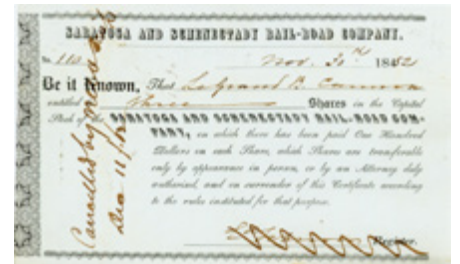 SARATOGA AND SCHENECTADY RAIL-ROAD COMPANY.
No. 110 Nov. 184
Be it Known, That Legrand B. Cannon
entitled Three Shares in the Capital
Stock of the SARATOGA AND SCHENECTADY RAIL-ROAD COM-
PANY, on which there has been paid One Hundred
Dollars on each Share, which Shares are transferable
only by appearance in person, or by an Attorney duly
authorized, and on surrender of this Certificate according
to the rules instituted for that purpose.
Register.
Cancelled by
Dec 11/